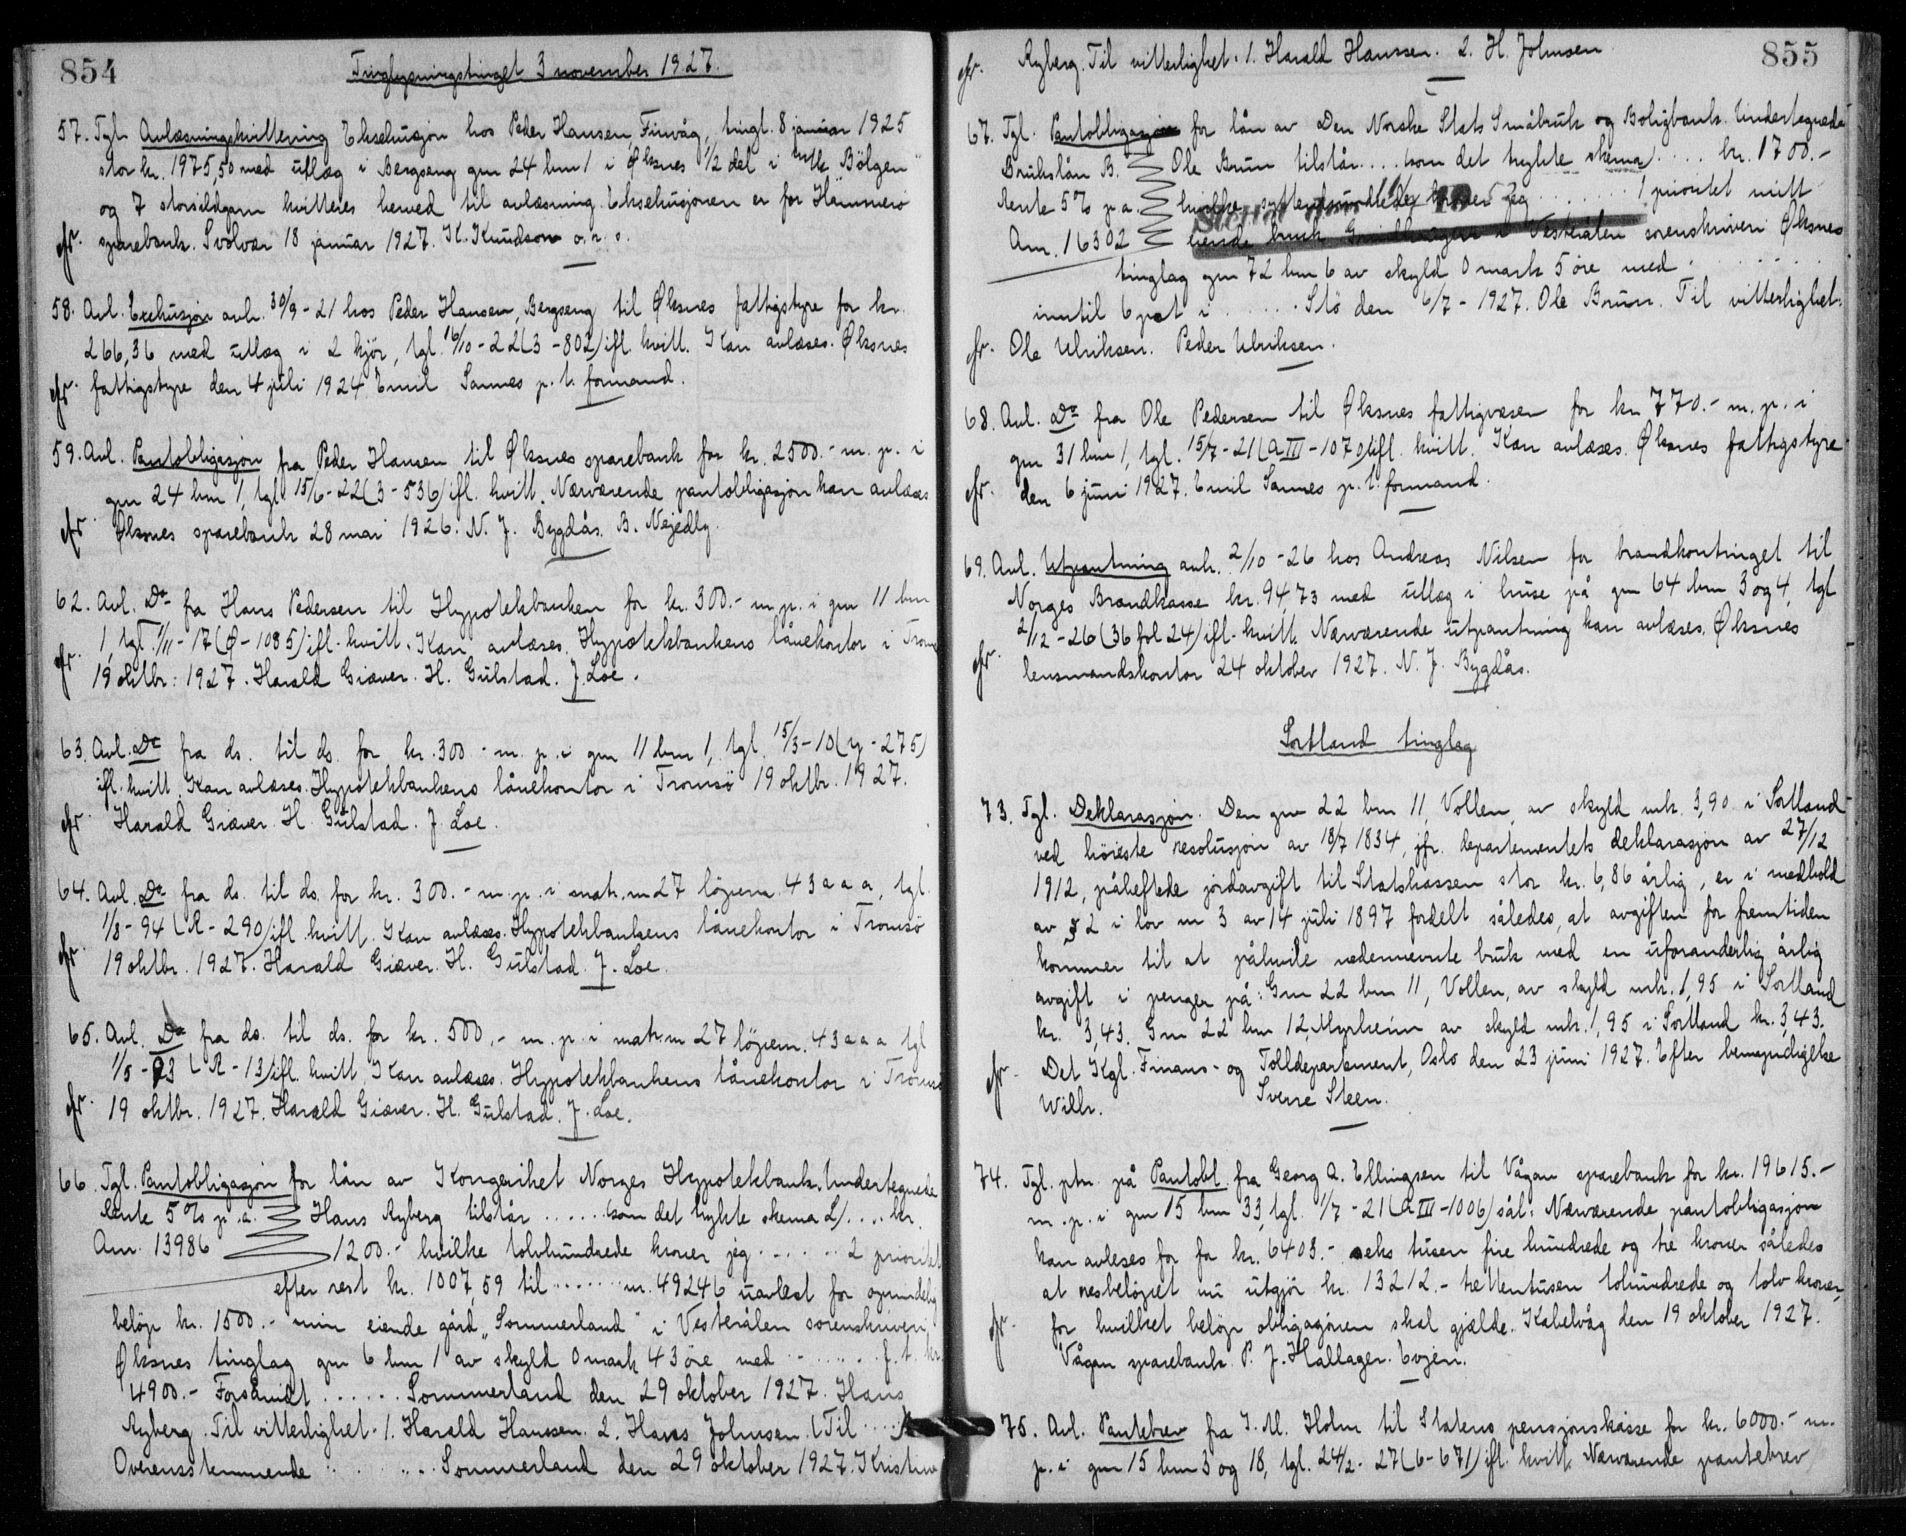 854
Tinglysningstinget 3 november 1927.
57. Tgl. Avlæsningskvittering Eksekusjon hos Peder Hansen, Finvåg, tingl. 8 januar 1925
stor kr. 1975,50 med utlæg i Bergseng gnr 24 bnr 1 i Øksnes 1/2 del i "Bölgen"
og 7 storsildgarn kvitteres herved til avlæsning. Eksekusjonen er for Hammerö
efr. sparebank. Svolvær 18 januar 1927. K. Knudson o.r.s.
58. Avl. Exekusjon avh. 30/9-21 hos Peder Hansen, Bergseng til Øksnes fattigstyre for kr.
266,36 med utlæg i 2 kjör, tgl. 16/10-22(3-802) ifl. kvitt. Kan avlæses. Øksnes
efr. fattigstyre den 4 juli 1924. Emil Sannes p.t. formand.
59. Avl. Pantobligasjon fra Peder Hansen til Øksnes sparebank for kr. 2500.- m. p. i
gnr 24 bnr 1, tgl. 15/6-22(3-536) ifl. kvitt. Nærværende pantobligasjon kan avlæses
efr Øksnes sparebank 28 mai 1926. N. J. Bygdås. B. Nejedly.
62. Avl. Do fra Hans Pedersen til Hypotekbanken for kr. 300.- m.p. i gnr 11 bnr
1, tgl. 1/11-17(Ø-1085) ifl. kvitt. Kan avlæses. Hypotekbankens lånekontor i Tromsö
efr. 19 oktbr. 1927. Harald Giæver. H. Gulstad. J. Loe.
63. Avl. Do fra ds. til ds. for kr. 300.- m. p. i gnr 11 bnr 1, tgl. 15/3-10(y-275)
ifl. kvitt. Kan avlæses. Hypotekbankens lånekontor i Tromsö 19 oktbr. 1927.
efr. Harald Giæver. H. Gulstad. J. Loe.
64. Avl. Do fra ds. til ds. for kr. 300.- m. p. i matr. nr 27 löpenr. 43 a a a, tgl.
1/8-94 (R-290) ifl. kvitt. Kan avlæses. Hypotekbankens lånekontor i Tromsö
efr. 19 oktbr. 1927. Harald Giæver. H. Gulstad. J. Loe.
65. Avl. Do fra ds. til ds. for kr. 500.- m. p. i matr. nr 27 löpenr. 43 a a a tgl
1/5-93 (R-13) ifl. kvitt. Kan avlæses. Hypotekbankens lånekontor i Tromsö
efr. 19 oktbr. 1927. Harald Giæver. H. Gulstad. J. Loe.
66. Tgl. Pantobligasjon for lån av Kongeriket Norges Hypotekbank. Undertegnede
Rente 5% p.a. Hans Ryberg tilstår ...... (som det trykte skema L) .... kr.
Anr. 13986 1200.- hvilke tolvhundrede kroner jeg ...... 2 prioritet
efter rest kr. 1007,59 til ...... nr. 49246 uavlest for oprindelig
belöp kr. 1500.- min eiende gård "Sommerland" i Vesterålen sorenskriveri
Øksnes tinglag gnr 6 bnr 1 av skyld 0 mark 43 öre med ...... f. t. kr.
4900.- Forsåvidt ...... Sommerland den 29 oktober 1927. Hans
Ryberg. Til vitterlighet. 1. Harald Hanssen. 2. Hans Johnsen. (Til ....
Overensstemmende ...... Sommerland den 29 oktober 1927. Kristine
855
efr. Ryberg. Til vitterlighet. 1. Harald Hanssen. 2. H. Johnsen
67. Tgl. Pantobligasjon for lån av Den Norske Stats Småbruk og Boligbank. Undertegnede
Brukslån B. Ole Brun tilstår .... (som det trykte skema) .... kr. 1700.-
Rente 5% p.a. hvilke syttenhundrede kroner jeg ...... 1 prioritet mitt
Anr. 16302 eiende bruk i Vesterålen sorenskriveri Øksnes
Slettet den 19 52
tinglag gnr 72 bnr 6 av skyld 0 mark 5 öre med ........
inntil 6 pct i ...... Stö den 6/7-1927. Ole Brun. Til vitterlighet:
efr. Ole Ulriksen. Peder Ulriksen.
68. Avl. Do fra Ole Pedersen til Øksnes fattigvæsen for kr 770.- m. p. i
gnr 31 bnr 1, tgl. 15/7-21 (A III-1070) ifl. kvitt. Kan avlæses. Øksnes fattigstyre
efr. den 6 juni 1927. Emil Sannes p.t. formand.
69. Avl. Utpantning avh. 2/10-26 hos Andreas Nilsen for brandkontinget til
Norges Brandkasse kr. 94,73 med utlæg i huse på gnr 64 bnr 3 og 4, tgl
2/12-26 (36 fol 24) ifl. kvitt. Nærværende utpantning kan avlæses. Øksnes
efr. lensmandskontor 24 oktober 1927. N. J. Bygdås.
Sortland tinglag
73. Tgl. Deklarasjon. Den gnr 22 bnr 11, Vollen, av skyld mk. 3,90 i Sortland
ved höieste resolusjon av 18/7 1834, jfr. departementets deklarasjon av 27/12
1912, påheftede jordavgift til Statskassen stor kr. 6,86 årlig, er i medhold
av § 2 i lov nr 3 av 14 juli 1897 fordelt således, at avgiften for fremtiden
kommer til at påhvile nedennevnte bruk med en uforanderlig årlig
avgift i penger på: Gnr 22 bnr 11, Vollen, av skyld mk. 1,95 i Sortland
kr. 3,43. Gnr 22 bnr 12, Myrheim av skyld mk. 1,95 i Sortland kr. 3,43.
efr. Det Kgl. Finans- og Tolldepartement, Oslo den 23 juni 1927. Efter bemyndigelse
Wilh. Sverre Steen.
74. Tgl. ptn. på Pantobl. fra Georg A. Ellingsen til Vågan sparebank for kr. 19615.-
m. p. i gnr 15 bnr 33, tgl. 1/7-21 (A III-1006) sål: Nærværende pantobligasjon
kan avleses for fra kr. 6403.- seks tusen fire hundrede og tre kroner således
at restbelöpet nu utgjör kr. 13212.- trettentusen tohundrede og tolv kroner,
efr. for hvilket belöp obligasjonen skal gjælde. Kabelvåg den 19 oktober 1927.
Vågan sparebank. P. J. Hallager. Evjen.
75. Avl. Pantebrev fra J. M. Holm til Statens pensjonskasse for kr. 6000.- m.
p. i gnr 15 bnr 3 og 18, tgl. 24/2-27 (6-671) ifl. kvitt. Nærværende pantebrev